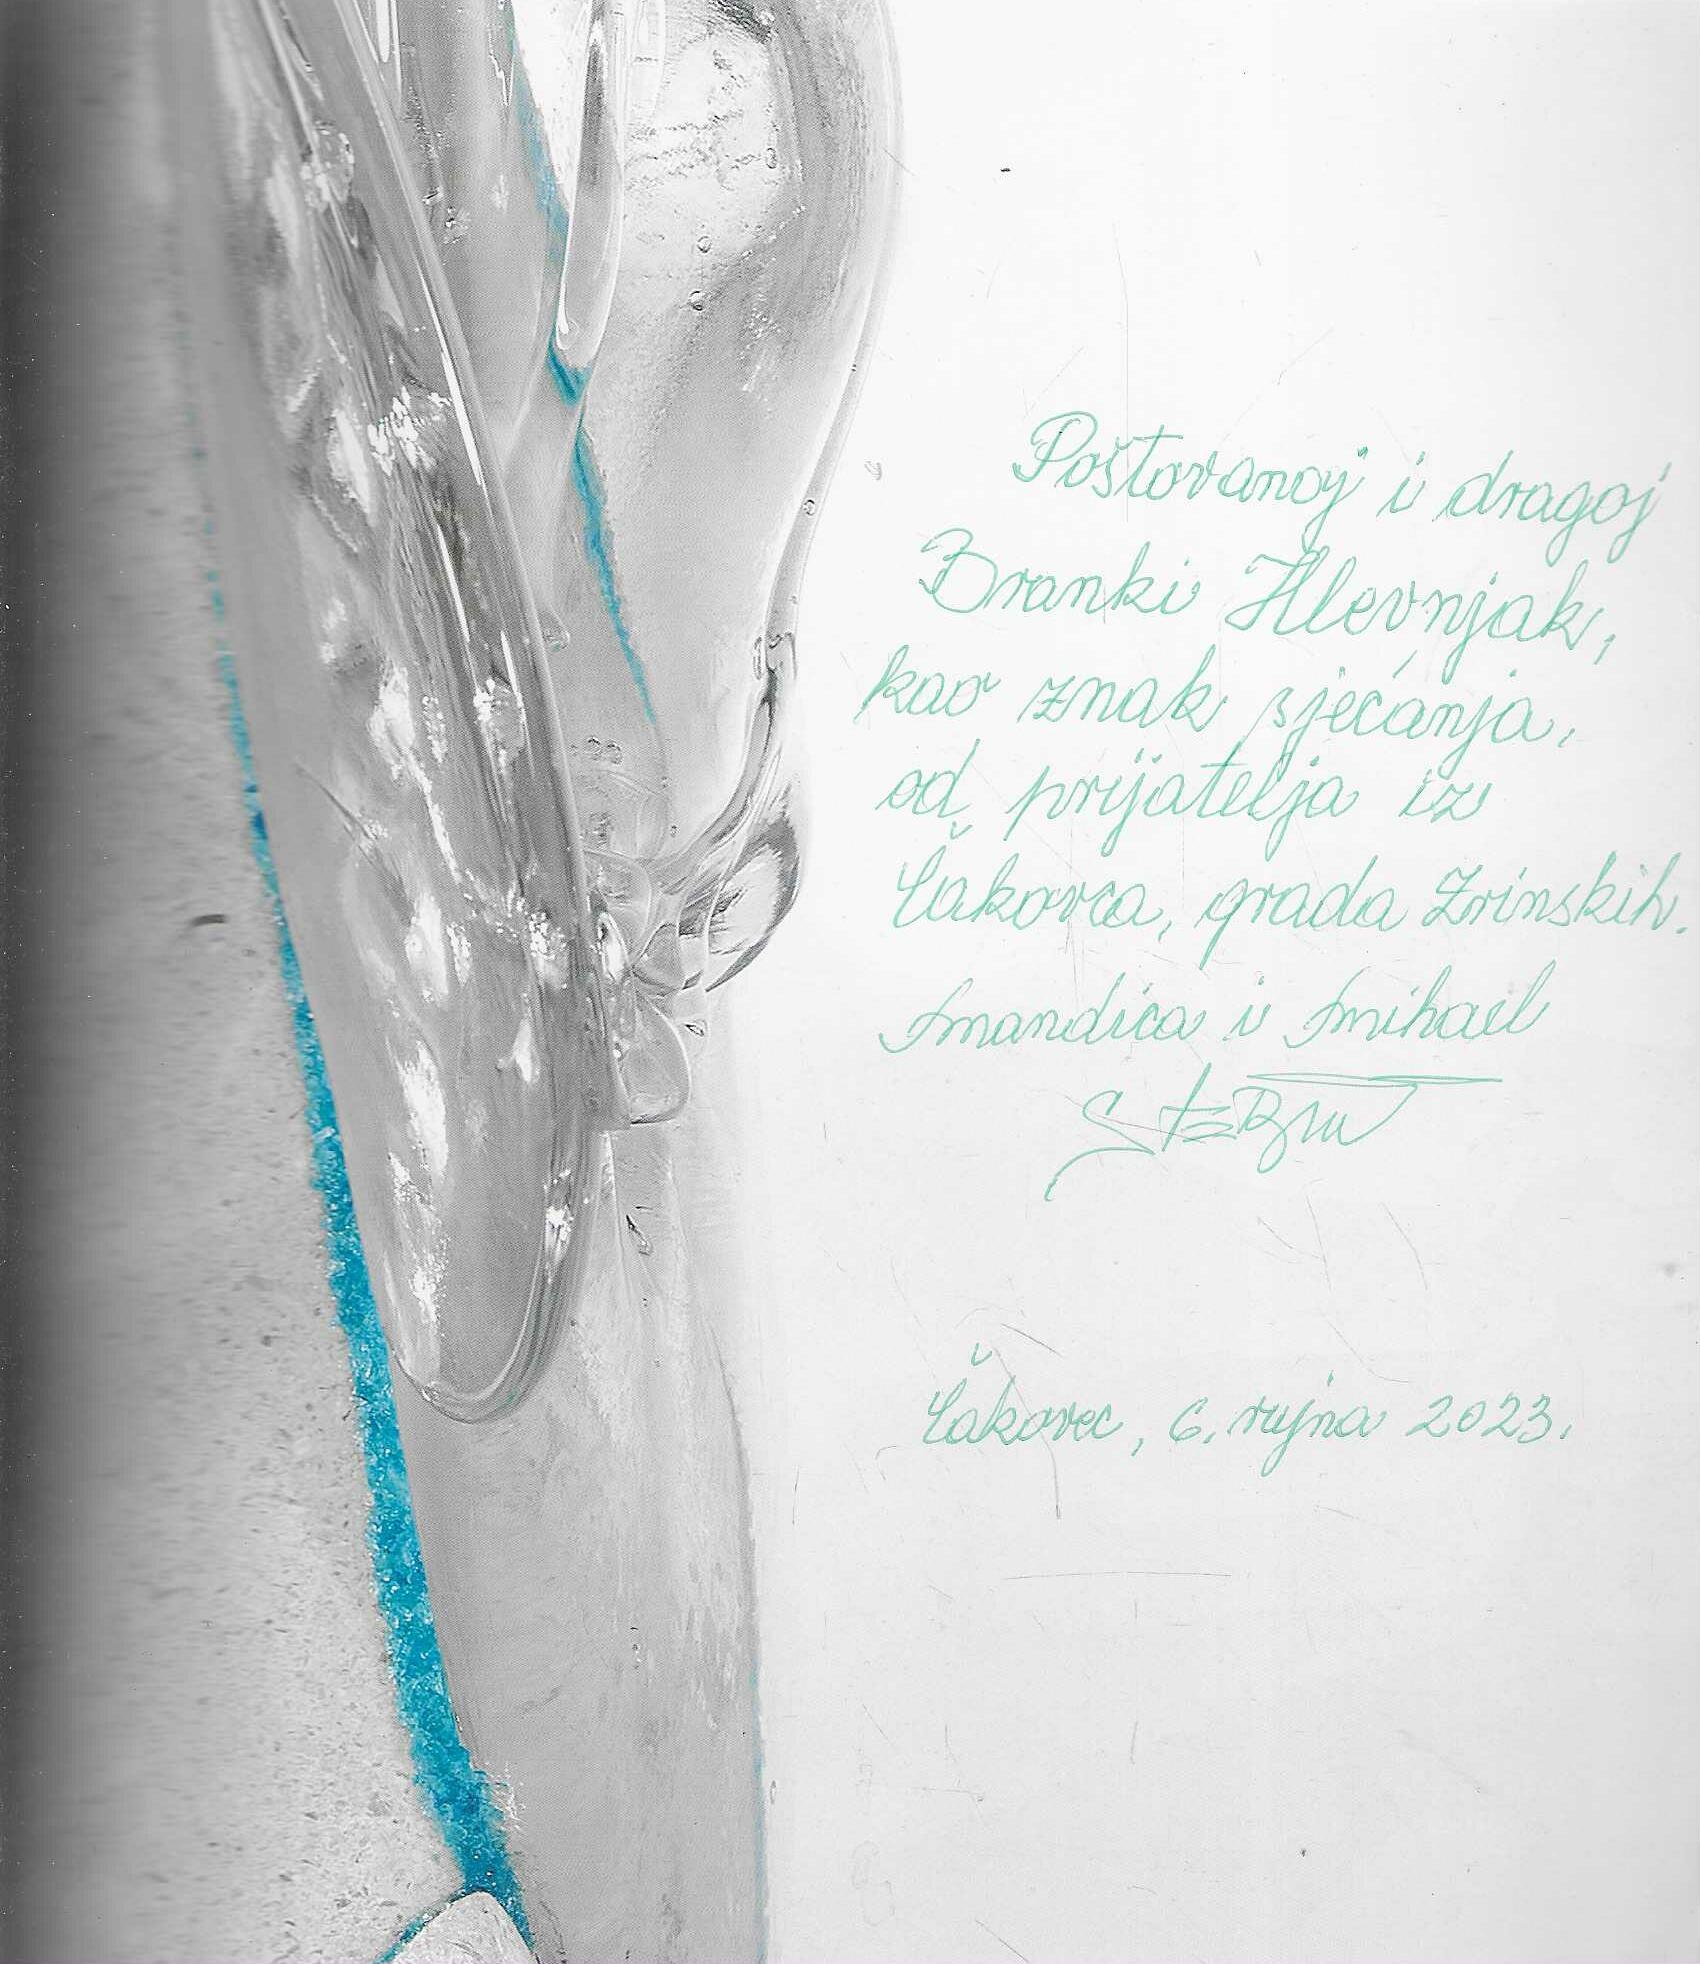 Poštovanoj i dragoj
Branki Hlevnjak,
kao znak sjećanja,
od prijatelja iz
Čakovca, grada Zrinskih.
Smandica i Smihael
Štebih
Čakovec, 6. rujna 2023.